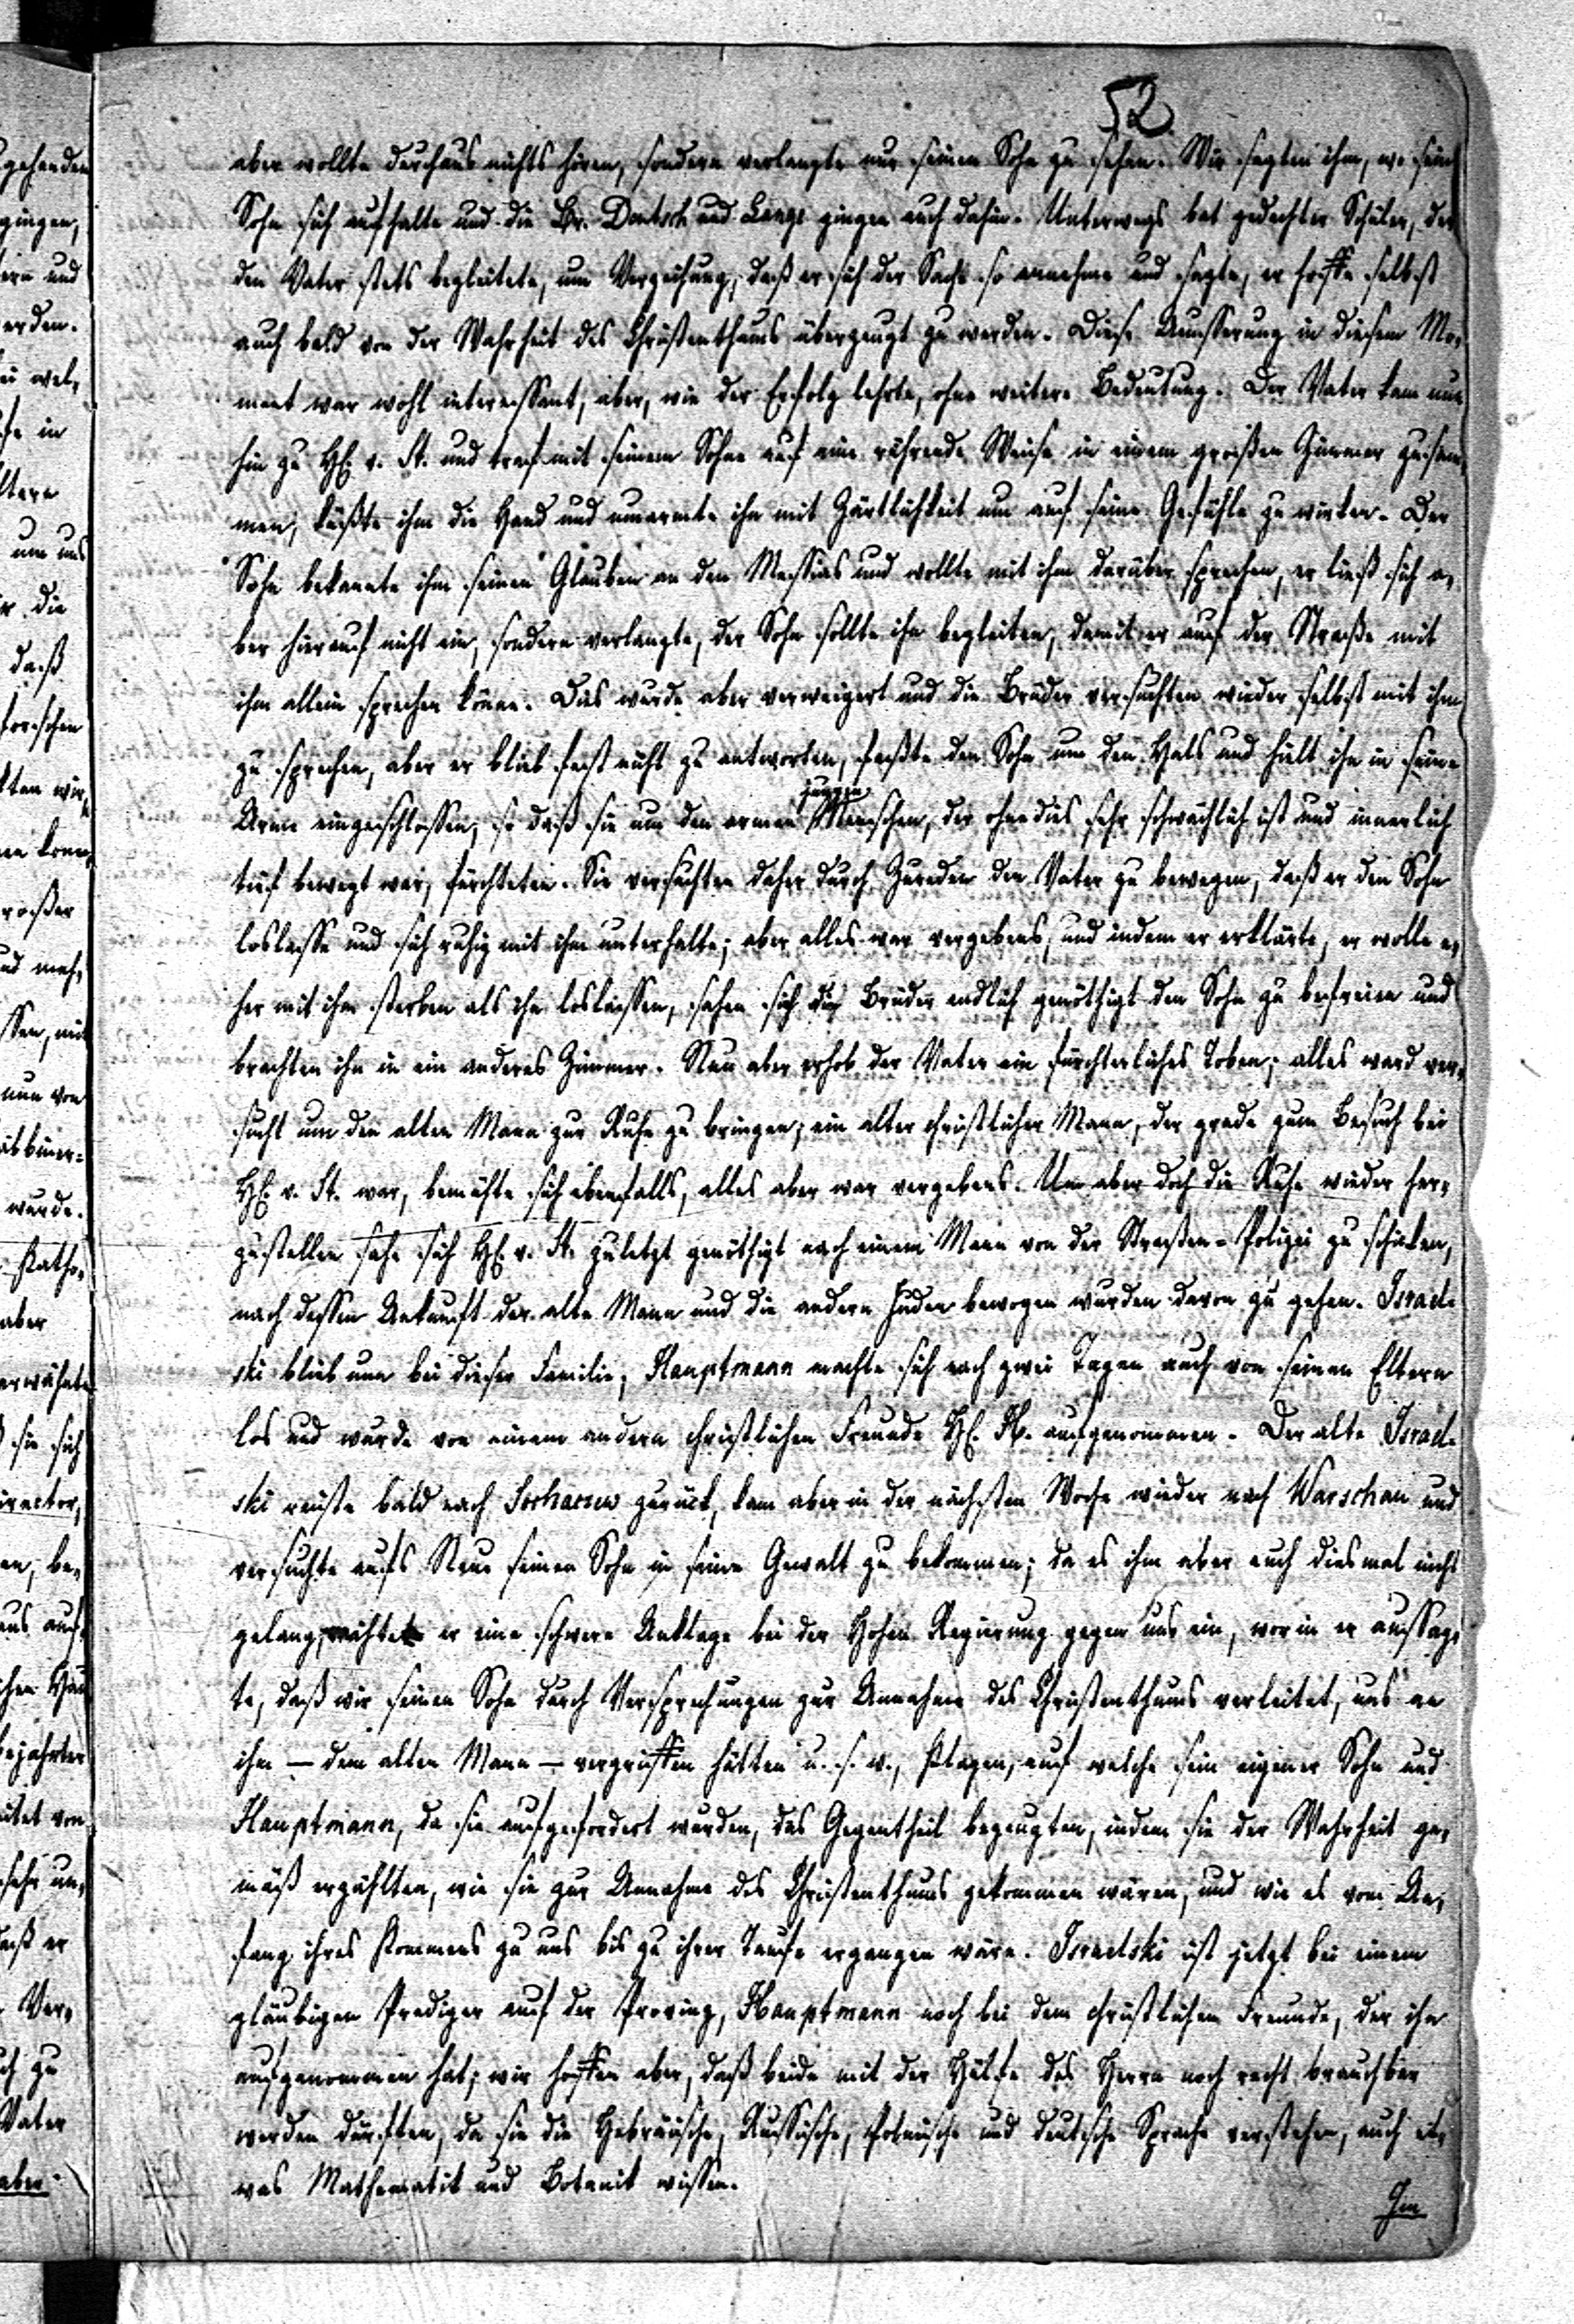 52
aber wollte durchaus nichts hören, sondern verlangte nur seinen Sohn zu sehen. Wir sagten ihm, wo sein
Sohn sich aufhalte und die Br. Deutsch und Lange gingen auch dahin. Unterwegs bat gedachter Schüler, der
den Vater stets begleitete, um Verzeihung, daß er sich der Sache so annehme und sagte, er hoffe selbst
auch bald von der Wahrheit des Christenthums überzeugt zu werden. Diese Aeusserung in diesem Mo-
ment war wohl interessant, aber, wie der Erfolg lehrte, ohne weitere Bedeutung. Der Vater kam nun
hin zu H. v. St. und traf mit seinem Sohne auf eine rührende Weise in einem großen Zimmer zusam-
men, küßte ihm die Hand und umarmte ihn mit Zärtlichkeit um auf seine Gefühle zu wirken. Der
Sohn bekannte ihm seinen Glauben an den Messias und wollte mit ihm darüber sprechen, er ließ sich a-
ber hierauf nicht ein, sondern verlangte, der Sohn sollte ihn begleiten, damit er auf der Straße mit
ihm allein sprechen könne. Das wurde aber verweigert und die Brüder versuchten wieder selbst mit ihm
zu sprechen, aber er blieb fest nicht zu antworten, faßte den Sohn um den Hals und hielt ihn in seine
jungen
Arme eingeschlossen, so daß sie um den armen Menschen, der ohnedies sehr schwächlich ist und innerlich
tief bewegt war, fürchteten. Sie versuchten daher durch Zureden den Vater zu bewegen, daß er den Sohn
loslasse und sich ruhig mit ihm unterhalte; aber alles war vergebens, und indem er erklärte, er wolle e-
her mit ihm sterben als ihn loslassen, sahen sich die Brüder endlich genöthigt den Sohn zu befreien und
brachten ihn in ein anderes Zimmer. Nun aber erhob der Vater ein fürchterliches Toben; alles ward ver-
sucht um den alten Mann zur Ruhe zu bringen; ein alter christlicher Mann, der grade zum Besuch bei
H. v. St. war, bemühte sich ebenfalls, alles aber war vergebens. Um aber doch die Ruhe wieder her-
zustellen sahe sich H. v. St. zuletzt genöthigt nach einem Mann von der Straßen-Polizei zu schicken,
nach dessen Ankunft der alte Mann und die andern Juden bewogen wurden davon zu gehen. Israel-
ski blieb nun bei dieser Familie; Hauptmann machte sich nach zwei Tagen auch von seinen Eltern
los und wurde von einem andern christlichen Freunde H. aufgenommen. Der alte Israel-
ski reiste bald nach Sochaczew zurück, kam aber in der nächsten Woche wieder nach Warschau und
versuchte aufs Neue seinen Sohn in seine Gewalt zu bekommen; da es ihm aber auch diesmal nicht
gelang, er eine schwere Anklage bei der Hohen Regierung gegen uns ein, worin er aussag-
te, daß wir seinen Sohn durch Versprechungen zur Annahme des Christenthums verleitet, uns an
ihm – dem alten Mann – vergriffen hätten u. s. w., Klagen, auf welche sein eigener Sohn und
Hauptmann, da sie aufgefordert wurden, das Gegentheil bezeugten, indem sie der Wahrheit ge-
mäß erzählten, wie sie zur Annahme des Christenthums gekommen wären, und wie es vom An-
fang ihres Kommens zu uns bis zu ihrer Taufe ergangen wäre. Israelski ist jetzt bei einem
gläubigen Prediger auf der Provinz, Hauptmann noch bei dem christlichen Freunde, der ihn
aufgenommen hat; wir hoffen aber, daß beide mit der Hülfe des Herrn noch recht brauchbar
werden dürften, da sie die Hebräische, Russische, Polnische und deutsche Sprache verstehen, auch et-
was Mathematik und Botanik wissen.
Im